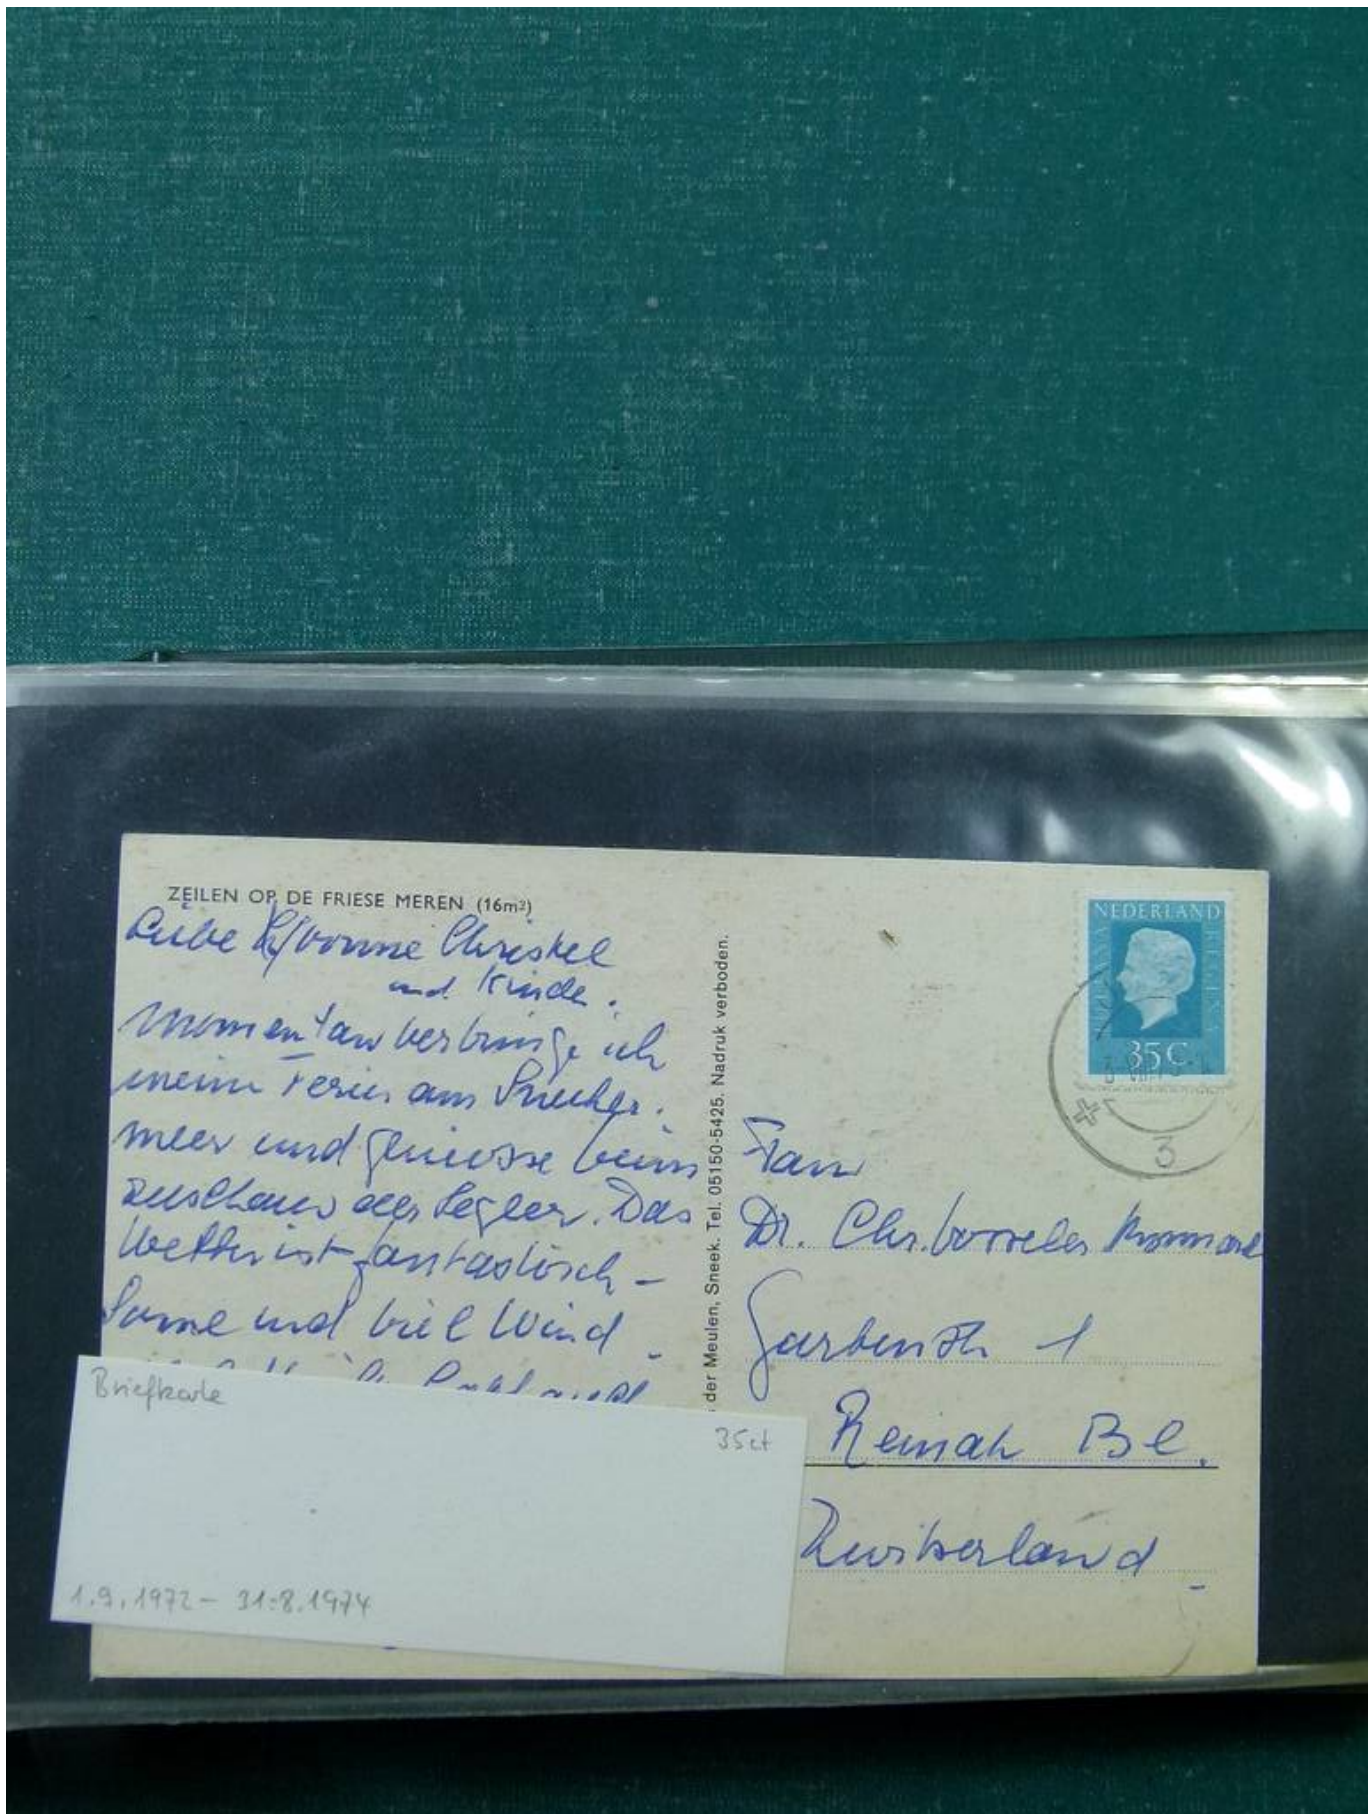 ZEILEN OP DE FRIESE MEREN (16m²)
Liebe Yvonne Christel
und Kinder.
Momentan verbringe ich
meine Ferien am Sneeker.
meer und geniesse beim
zuschauen der Segler. Das
Wetter ist fantastisch –
Sonne und viel Wind
der Meulen, Sneek. Tel. 05150-5425. Nadruk verboden.
NEDERLAND
JULIANA REGINA
35 C
3
Frau
Dr. Chr.
Gartenstr 1
Reinach Bl.
Zwitserland
Briefkarte
35ct
1.9.1972 – 31.8.1974